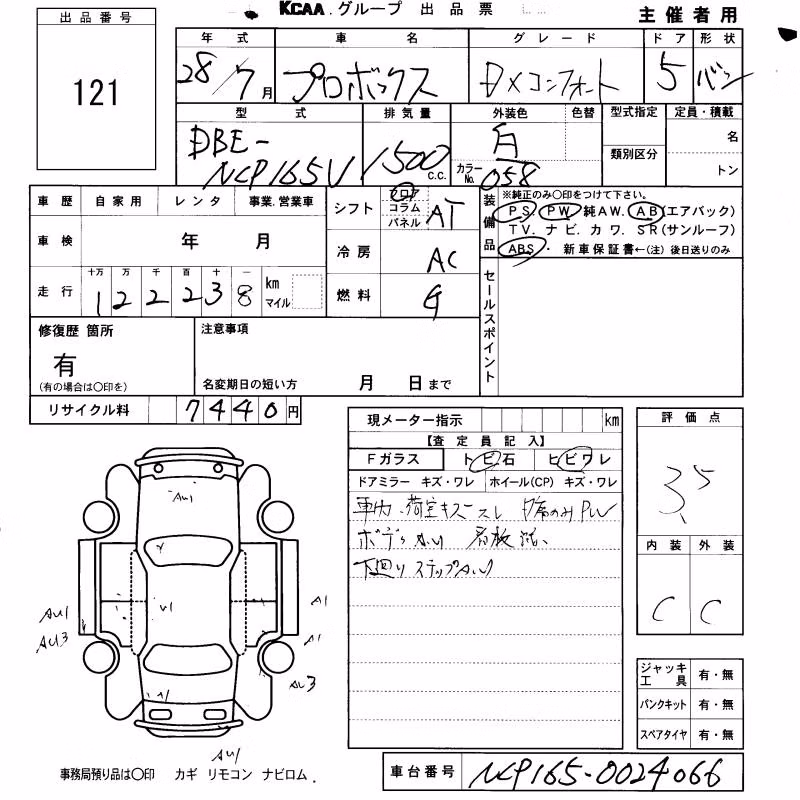 KCAA.グループ 出品票
主催者用
出品番号
121
年式 車名 グレード ドア 形状
28/7月 プロボックス DXコンフォート 5 バン
型式 排気量 外装色 色替 型式指定 定員・積載
DBE-
NCP165V
1500c.c.
白
カラーNo. 058
類別区分
名
トン
車歴 自家用 レンタ 事業.営業車
車検 年 月
十万 万 千 百 十 一
走行 122238 km マイル
シフト フロア コラム パネル AT
冷房 AC
燃料 G
装備品
※純正のみ○印をつけて下さい。
PS. PW. 純AW. AB(エアバック)
TV. ナビ. カワ. SR(サンルーフ)
ABS・ 新車保証書←(注)後日送りのみ
セールスポイント
修復歴 箇所
有
(有の場合は○印を)
注意事項
名変期日の短い方 月 日まで
リサイクル料 7440円
現メーター指示 km
【査定員記入】
Fガラス トビ石 ヒビワレ
ドアミラー キズ・ワレ ホイール(CP) キズ・ワレ
車内.荷室キズ スレ
PW
ボディAU 看板
下廻り ステップAU
評価点
3.5
内装 外装
C C
ジャッキ工具 有・無
パンクキット 有・無
スペアタイヤ 有・無
AU1
Y
V1
AU1
AU3
A1
A1
AU3
A1
AU1
事務局預り品は○印 カギ リモコン ナビロム.
車台番号 NCP165-0024066